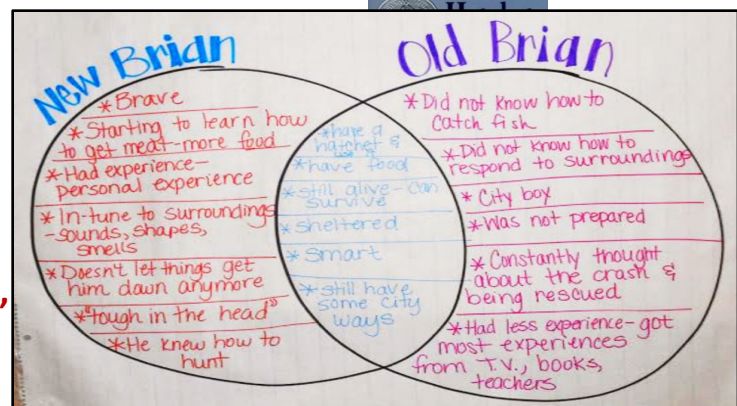 New Brian
Old Brian
*Brave
*Starting to learn how
to get meat-more food
*Had experience-
personal experience
*In-tune to surroundings
-sounds, shapes,
smells
*Doesn't let things get
him down anymore
*"tough in the head"
*He knew how to
hunt
*have a
hatchet &
use it
*have food
*still alive-can
survive
*sheltered
*smart
*still have
some city
ways
*Did not know how to
catch fish
*Did not know how to
respond to surroundings
*City boy
*Was not prepared
*Constantly thought
about the crash &
being rescued
*Had less experience-got
most experiences
from T.V., books,
teachers
,